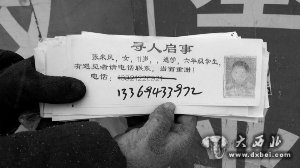 寻人启事
张来凤，女，11岁，退学，六年级学生，
有遇见者请电话联系，当面重谢！
电话：
13369433972
大西北
www.dxbei.com